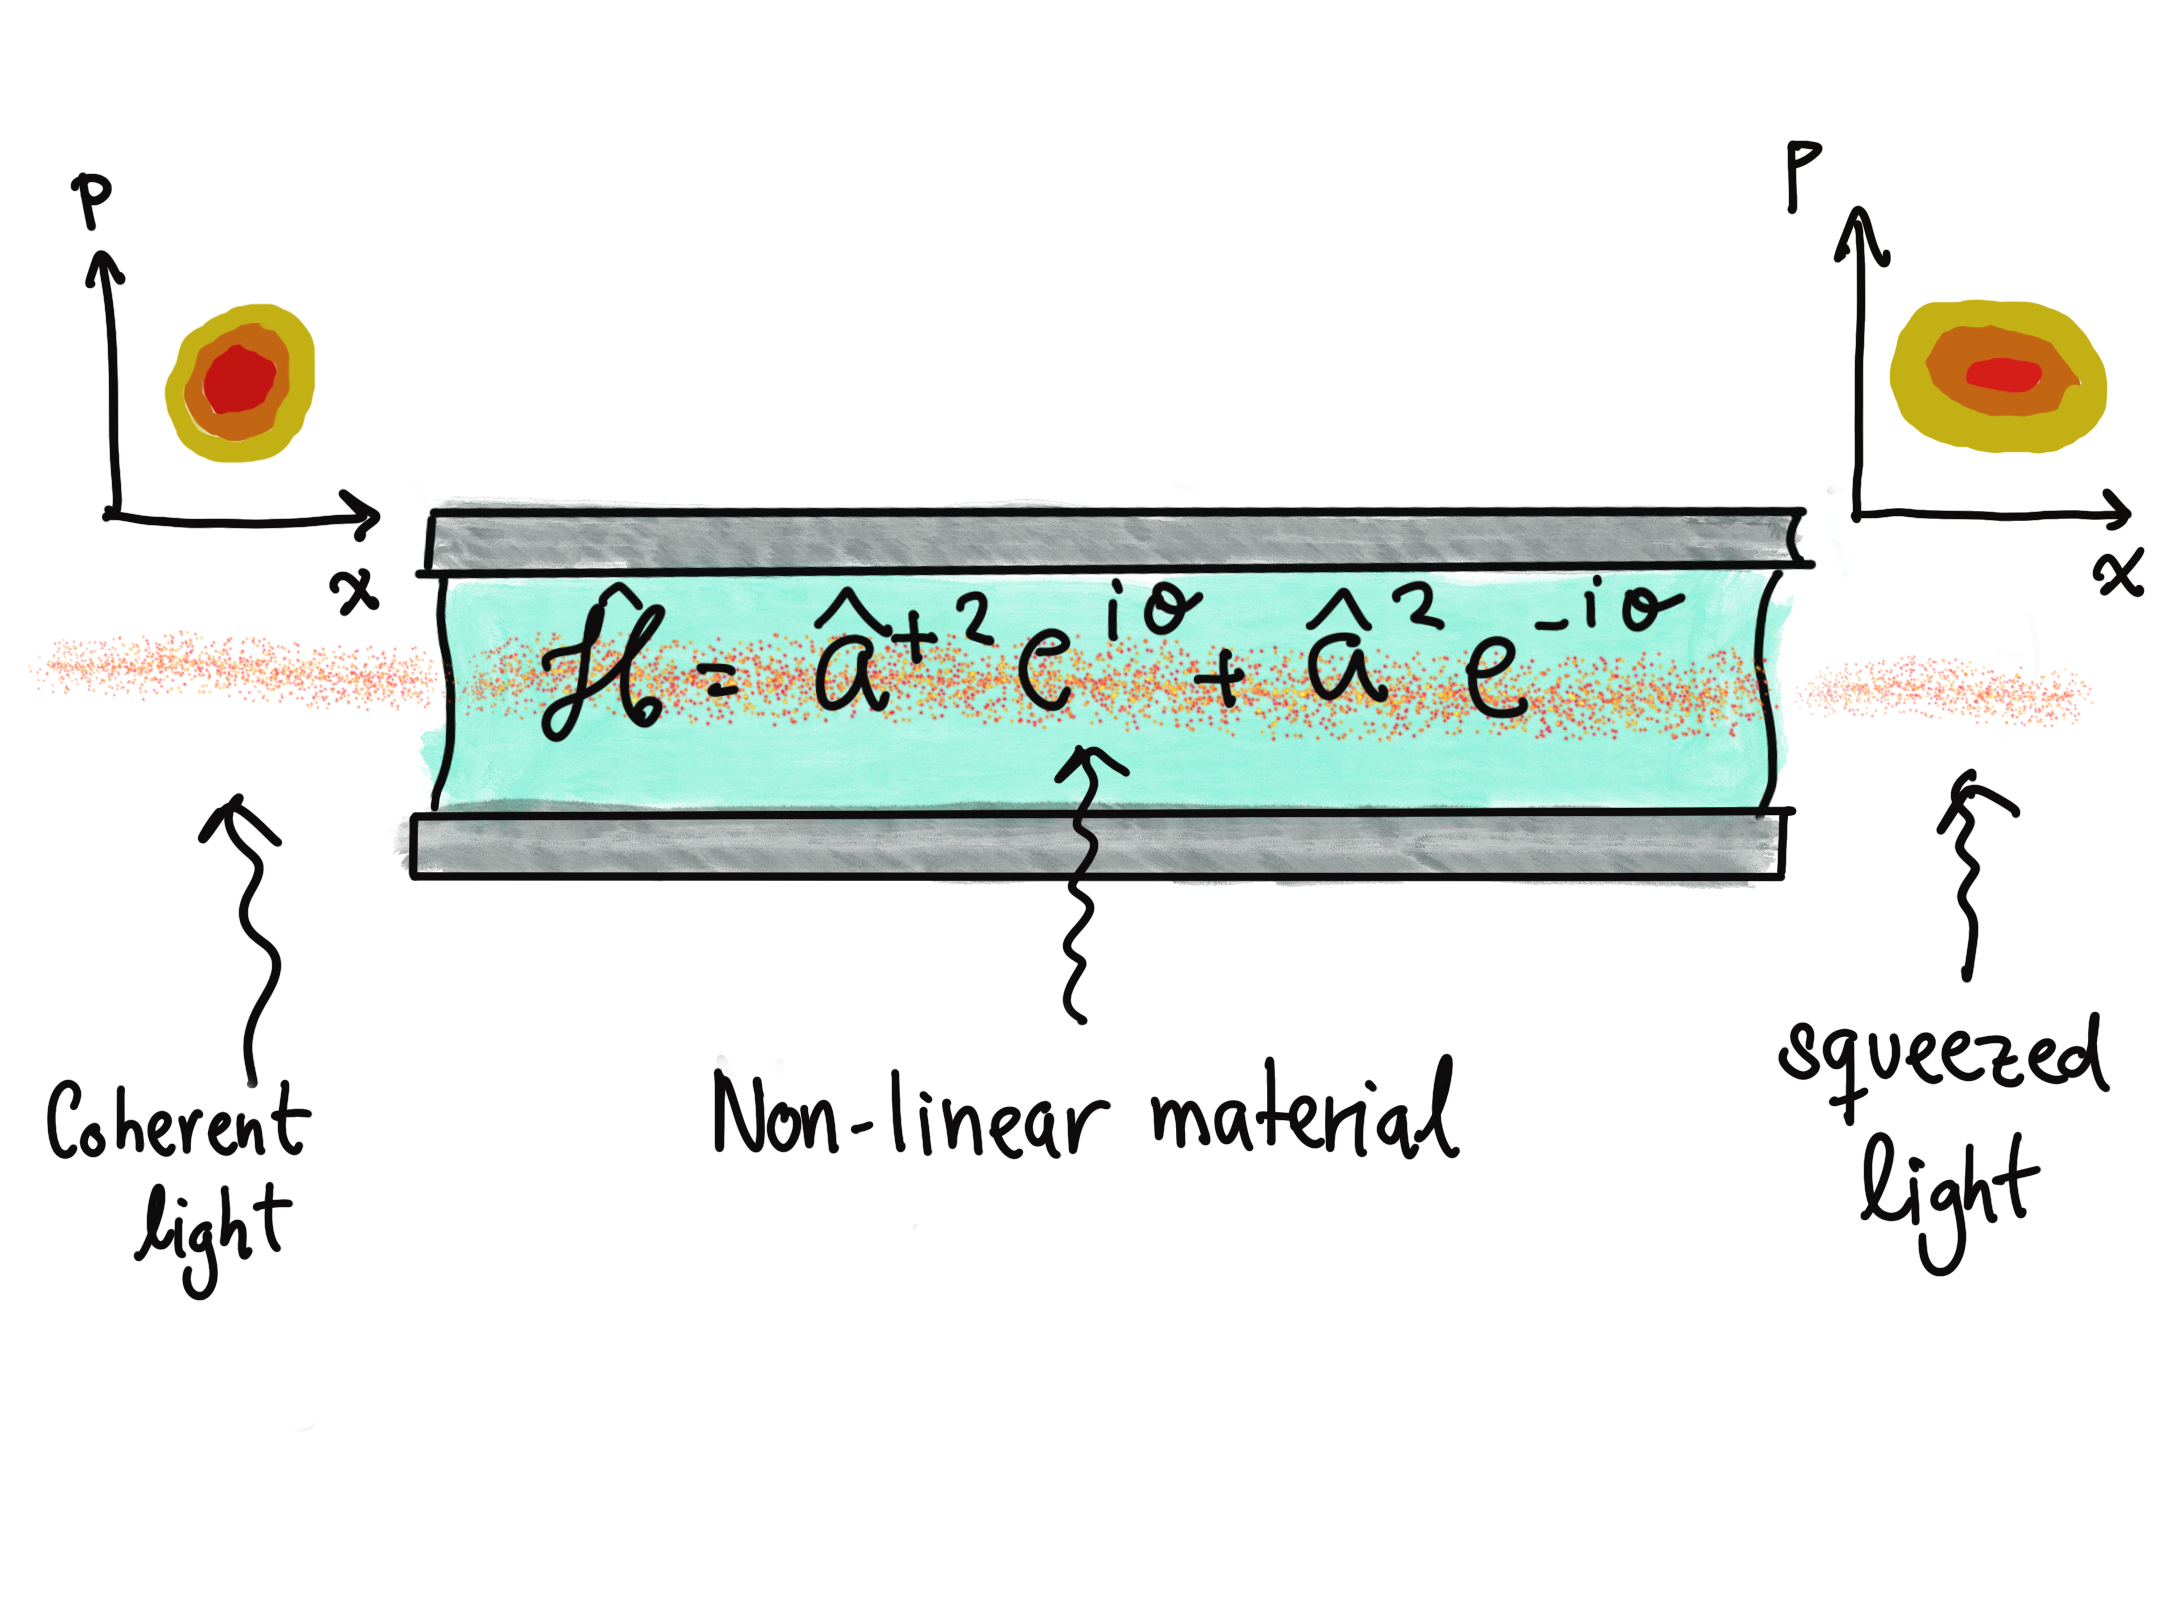 P
P
x
x
Ĥ = â⁺² e^{iθ} + â² e^{-iθ}
Coherent
light
Non-linear material
squeezed
light